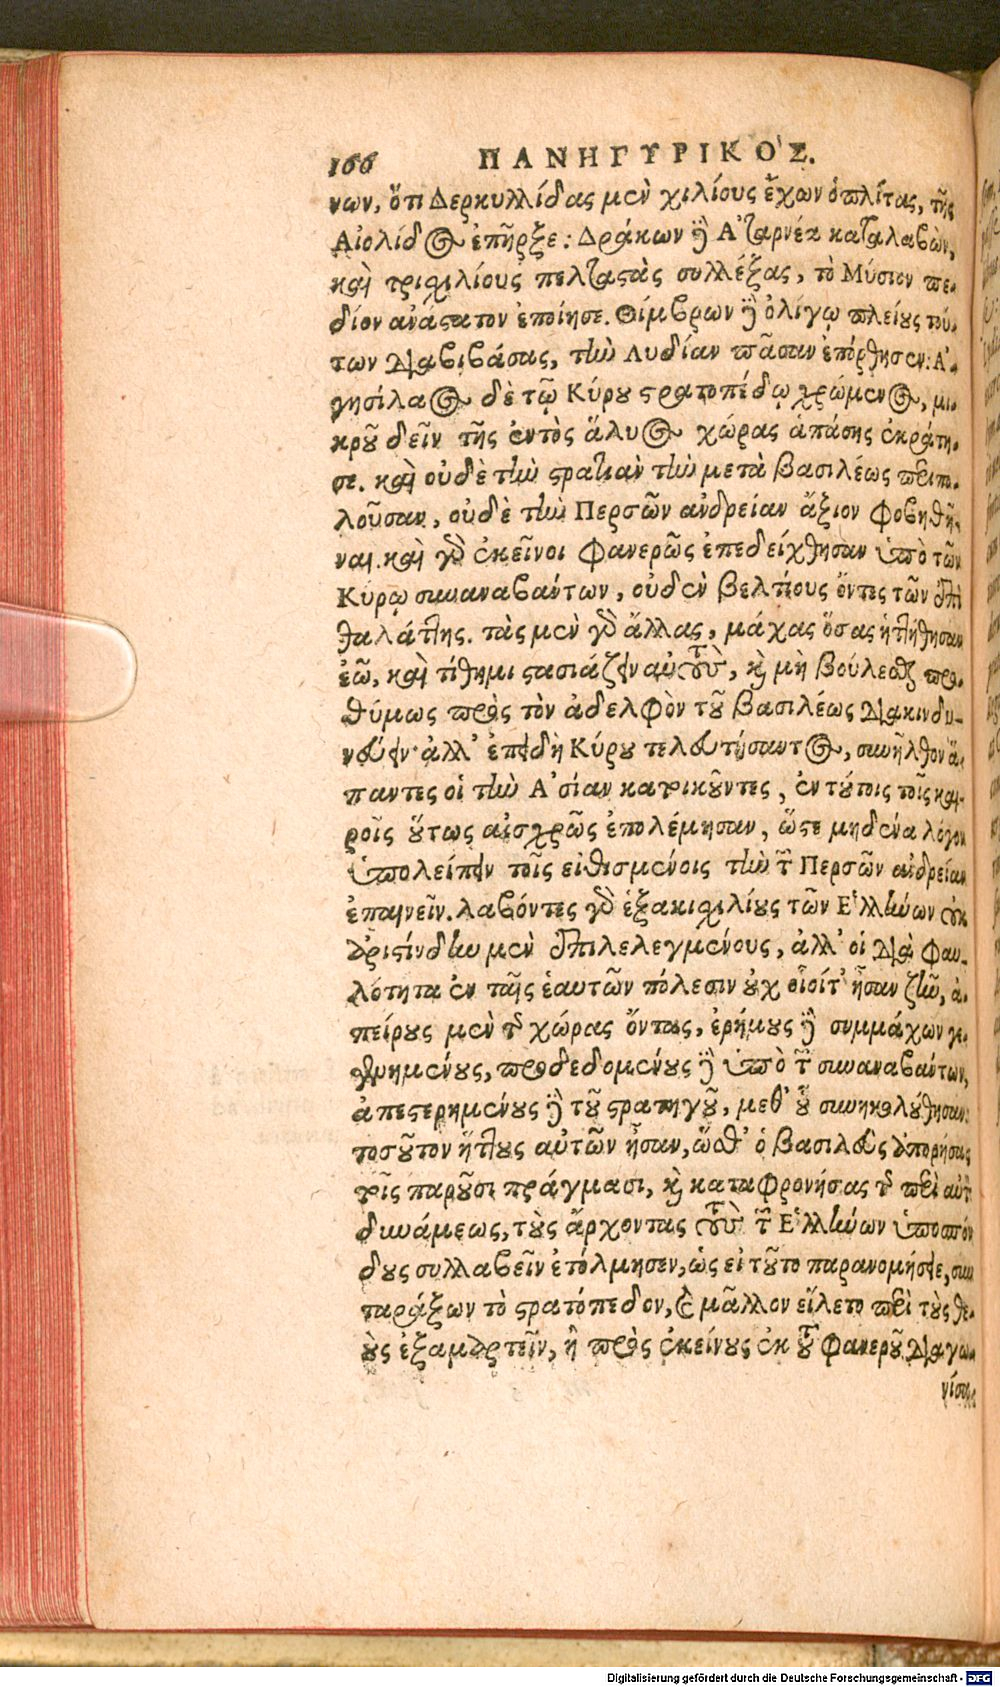 166 ΠΑΝΗΓΥΡΙΚΟ'Σ.
νων, ὅτι Δερκυλλίδας μὲν χιλίους ἔχων ὁπλίτας, τῆς
Αἰολίδος ἐπῆρξε: Δράκων δὲ Ἀταρνέα καταλαβὼν,
καὶ τρισχιλίους πελταστὰς συλλέξας, τὸ Μύσιον πε-
δίον ἀνάστατον ἐποίησε. Θίμβρων δὲ ὀλίγῳ πλείους τού-
των διαβιβάσας, τὴν Λυδίαν πᾶσαν ἐπόρθησεν: Ἀ-
γησίλαος δὲ τῷ Κύρου στρατοπέδῳ χρώμενος, μι-
κροῦ δεῖν τῆς ἐντὸς ἅλυος χώρας ἁπάσης ἐκράτη-
σε. καὶ οὐδὲ τὴν στρατιὰν τὴν μετὰ βασιλέως περιπο-
λοῦσαν, οὐδὲ τὴν Περσῶν ἀνδρείαν ἄξιον φοβηθῆ-
ναι. καὶ γὰρ ἐκεῖνοι φανερῶς ἐπεδείχθησαν ὑπὸ τῶν
Κύρῳ συναναβάντων, οὐδὲν βελτίους ὄντες τῶν ἐπὶ
θαλάττης. τὰς μὲν γὰρ ἄλλας, μάχας ὅσας ἡττήθησαν
ἐῶ, καὶ τίθημι στασιάζειν αὐτοὺς, καὶ μὴ βούλεσθαι προ-
θύμως πρὸς τὸν ἀδελφὸν τοῦ βασιλέως διακινδυ-
νεύειν· ἀλλ' ἐπειδὴ Κύρου τελευτήσαντος, συνῆλθον ἅ-
παντες οἱ τὴν Ἀσίαν κατοικοῦντες, ἐν τούτοις τοῖς και-
ροῖς οὕτως αἰσχρῶς ἐπολέμησαν, ὥστε μηδένα λόγον
ὑπολείπειν τοῖς εἰθισμένοις τὴν τῶν Περσῶν ἀνδρείαν
ἐπαινεῖν. λαβόντες γὰρ ἑξακισχιλίους τῶν Ἑλλήνων οὐκ
ἀριστίνδην μὲν ἐπιλελεγμένους, ἀλλ' οἱ διὰ φαυ-
λότητα ἐν ταῖς ἑαυτῶν πόλεσιν οὐχ οἷοίτ' ἦσαν ζῆν, ἀ-
πείρους μὲν τῆς χώρας ὄντας, ἐρήμους δὲ συμμάχων γε-
γενημένους, προδεδομένους δὲ ὑπὸ τῶν συναναβάντων,
ἀπεστερημένους δὲ τοῦ στρατηγοῦ, μεθ' οὗ συνηκολούθησαν:
τοσοῦτον ἥττους αὐτῶν ἦσαν, ὥσθ' ὁ βασιλεὺς ἀπορήσας
τοῖς παροῦσι πράγμασι, καὶ καταφρονήσας τῆς περὶ αὐτὸν
δυνάμεως, τοὺς ἄρχοντας τοὺς τῶν Ἑλλήνων ὑποσπόν
δους συλλαβεῖν ἐτόλμησεν, ὡς εἰ τοῦτο παρανομήσειε, συν
ταράξων τὸ στρατόπεδον, καὶ μᾶλλον εἵλετο περὶ τοὺς θε-
οὺς ἐξαμαρτεῖν, ἢ πρὸς ἐκείνους ἐκ τοῦ φανεροῦ διαγω-
νίσα-
Digitalisierung gefördert durch die Deutsche Forschungsgemeinschaft - DFG